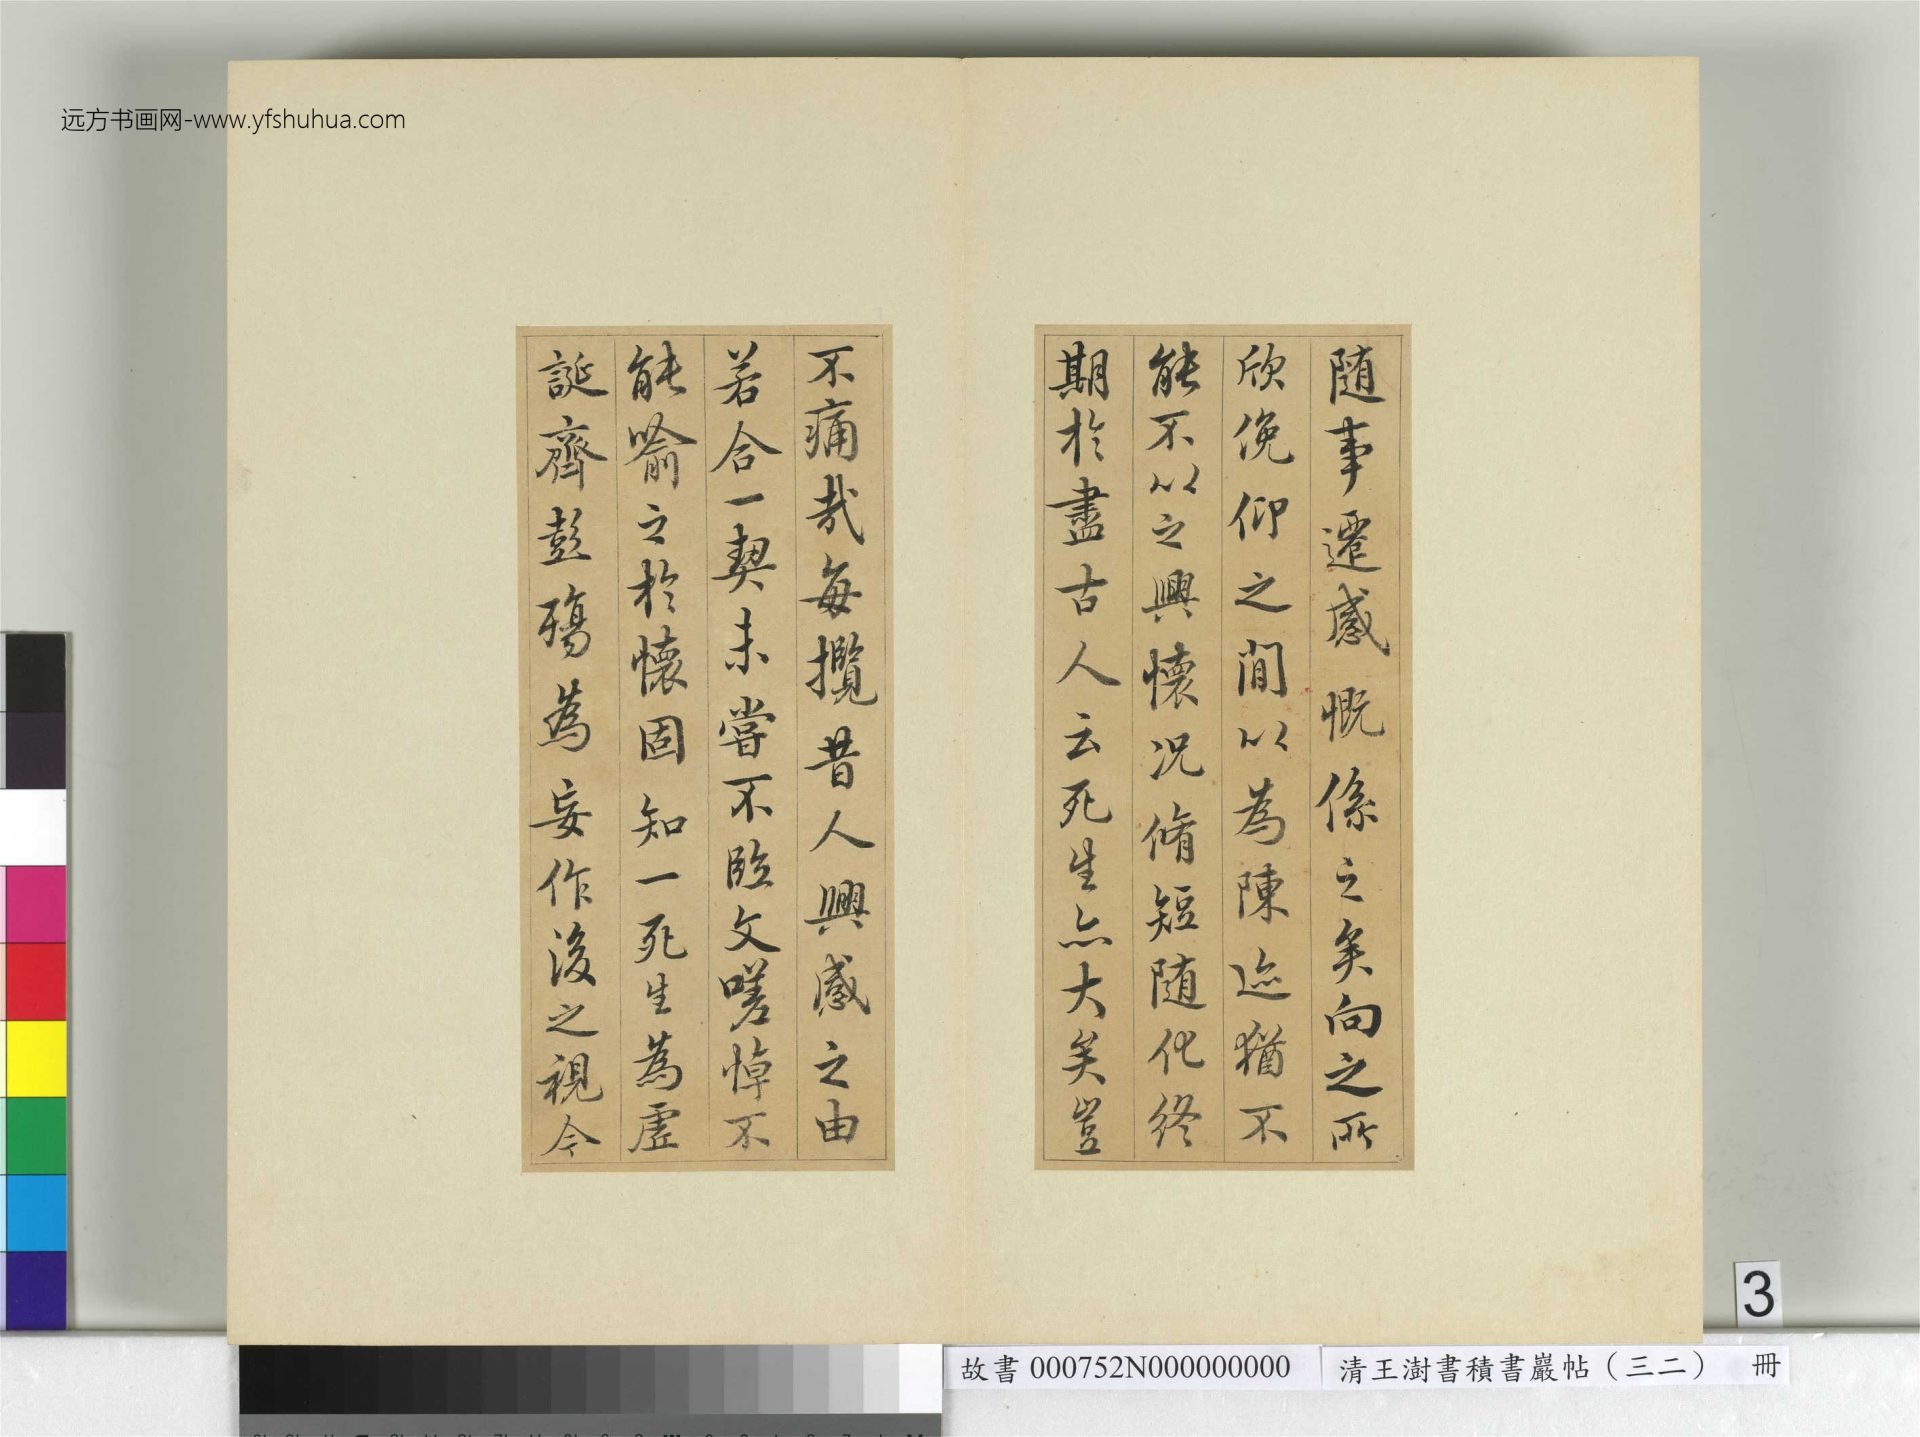 远方书画网-www.yfshuhua.com
随事遷感慨係之矣向之所
欣俛仰之間以為陳迹猶不
能不以之興懷况脩短随化終
期於盡古人云死生亦大矣豈
不痛哉每攬昔人興感之由
若合一契未嘗不臨文嗟悼不
能喻之於懷固知一死生為虛
誕齊彭殤為妄作後之視今
3
故書 000752N000000000
清王澍書積書巖帖（三二） 冊